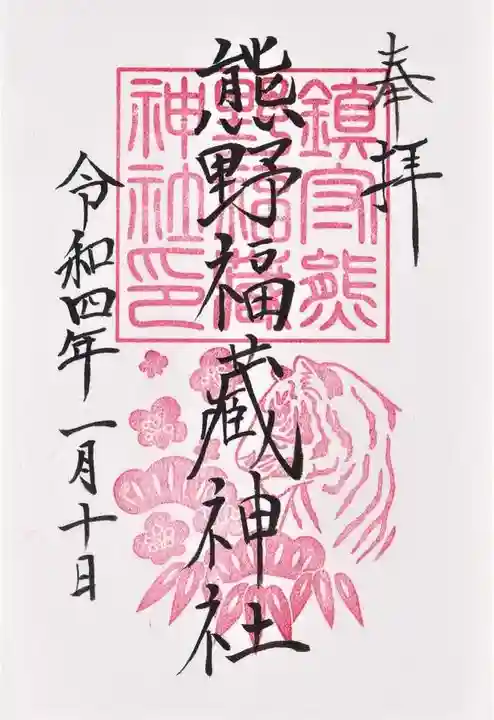 奉拝
鎮守熊
野福蔵
神社印
熊野福蔵神社
令和四年一月十日